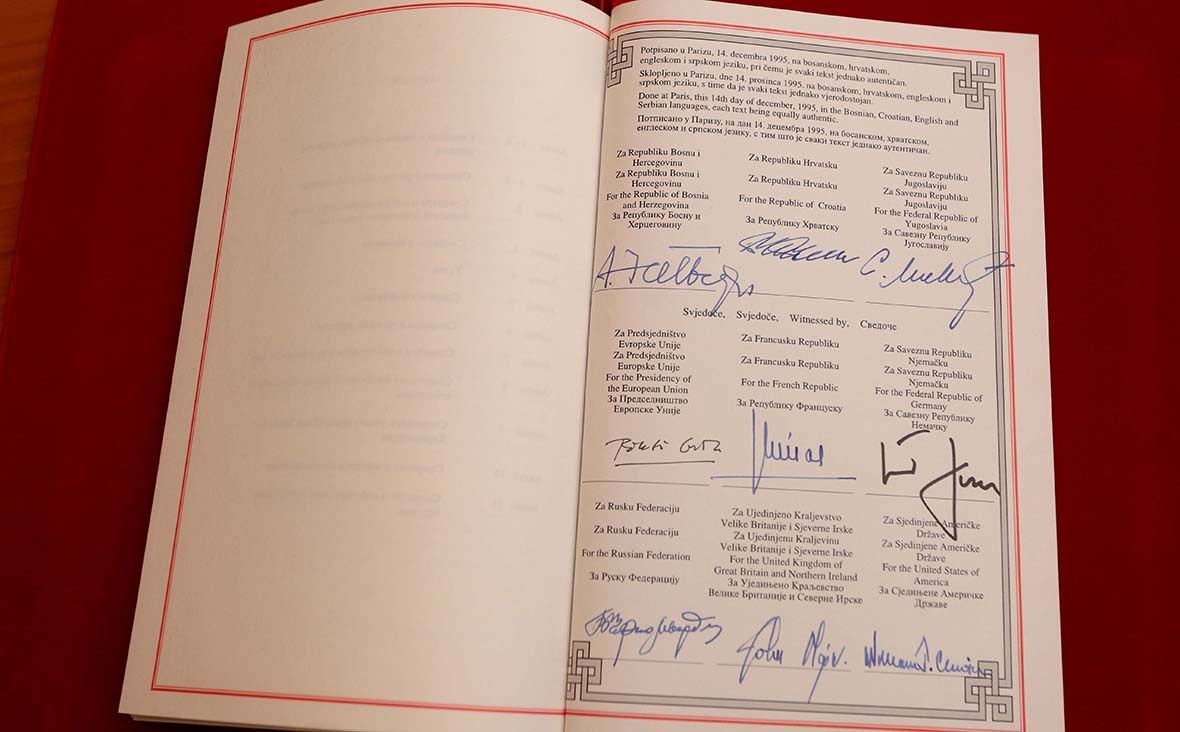 Potpisano u Parizu, 14. decembra 1995, na bosanskom, hrvatskom,
engleskom i srpskom jeziku, pri čemu je svaki tekst jednako autentičan.
Sklopljeno u Parizu, dne 14. prosinca 1995, na bosanskom, hrvatskom, engleskom i
srpskom jeziku, s time da je svaki tekst jednako vjerodostojan.
Done at Paris, this 14th day of december, 1995, in the Bosnian, Croatian, English and
Serbian languages, each text being equally authentic.
Потписано у Паризу, на дан 14. децембра 1995, на босанском, хрватском,
енглеском и српском језику, с тим што је сваки текст једнако аутентичан.
Za Republiku Bosnu i
Hercegovinu
Za Republiku Bosnu i
Hercegovinu
For the Republic of Bosnia
and Herzegovina
За Републику Босну и
Херцеговину
Za Republiku Hrvatsku
Za Republiku Hrvatsku
For the Republic of Croatia
За Републику Хрватску
Za Saveznu Republiku
Jugoslaviju
Za Saveznu Republiku
Jugoslaviju
For the Federal Republic of
Yugoslavia
За Савезну Републику
Југославију
Svjedoče, Svjedoče, Witnessed by, Сведоче
Za Predsjedništvo
Evropske Unije
Za Predsjedništvo
Europske Unije
For the Presidency of
the European Union
За Председништво
Европске Уније
Za Francusku Republiku
Za Francusku Republiku
For the French Republic
За Републику Француску
Za Saveznu Republiku
Njemačku
Za Saveznu Republiku
Njemačku
For the Federal Republic of
Germany
За Савезну Републику
Немачку
Za Rusku Federaciju
Za Rusku Federaciju
For the Russian Federation
За Руску Федерацију
Za Ujedinjeno Kraljevstvo
Velike Britanije i Sjeverne Irske
Za Ujedinjenu Kraljevinu
Velike Britanije i Sjeverne Irske
For the United Kingdom of
Great Britain and Northern Ireland
За Уједињено Краљевство
Велике Британије и Северне Ирске
Za Sjedinjene Američke
Države
Za Sjedinjene Američke
Države
For the United States of
America
За Сједињене Америчке
Државе
John
William J.